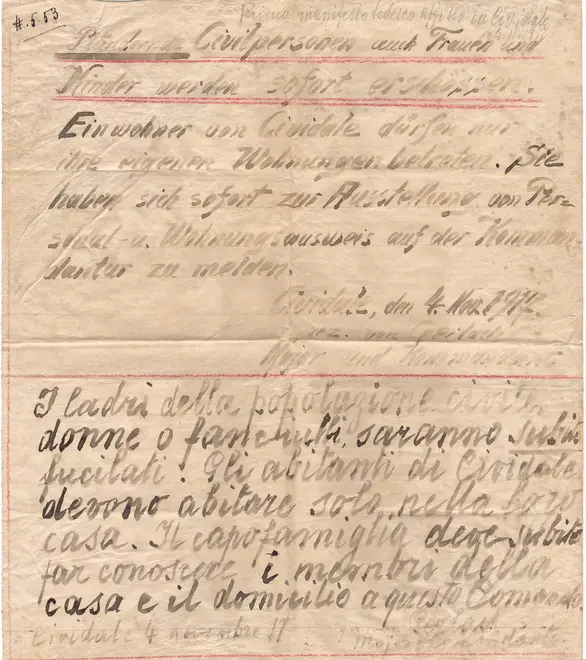 A.5.53
primo manifesto tedesco affisso in Cividale
Plündernde Civilpersonen auch Frauen und
Kinder werden sofort erschossen.
Einwohner von Cividale dürfen nur
ihre eigenen Wohnungen betreten. Sie
haben sich sofort zur Ausstellung von Per-
sonal- u. Wohnungsausweis auf der Komman
dantur zu melden.
Cividale, den 4. Nov. 1917.
gez. von Gerlach
Major und Kommandant
I ladri della popolazione civile,
donne o fanciulli, saranno subito
fucilati. Gli abitanti di Cividale
devono abitare solo nella loro
casa. Il capofamiglia deve subito
far conoscere i membri della
casa e il domicilio a questo Comando
Cividale 4 novembre 17
Maggiore Comandante